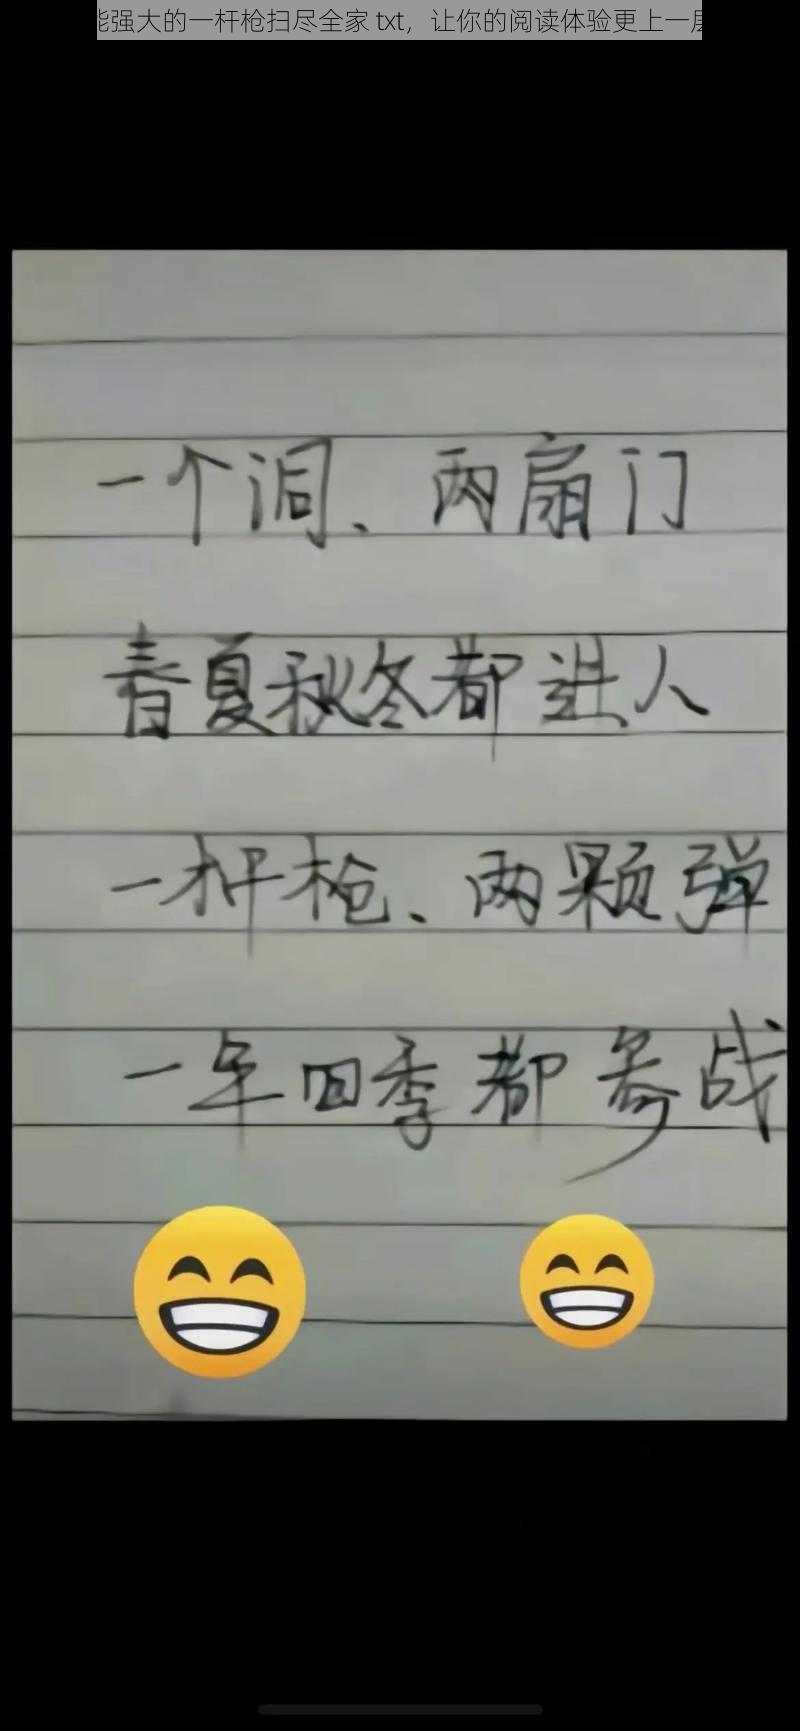 能强大的一杆枪扫尽全家 txt，让你的阅读体验更上一层
一个洞、两扇门
春夏秋冬都进人
一杆枪、两颗弹
一年四季都参战